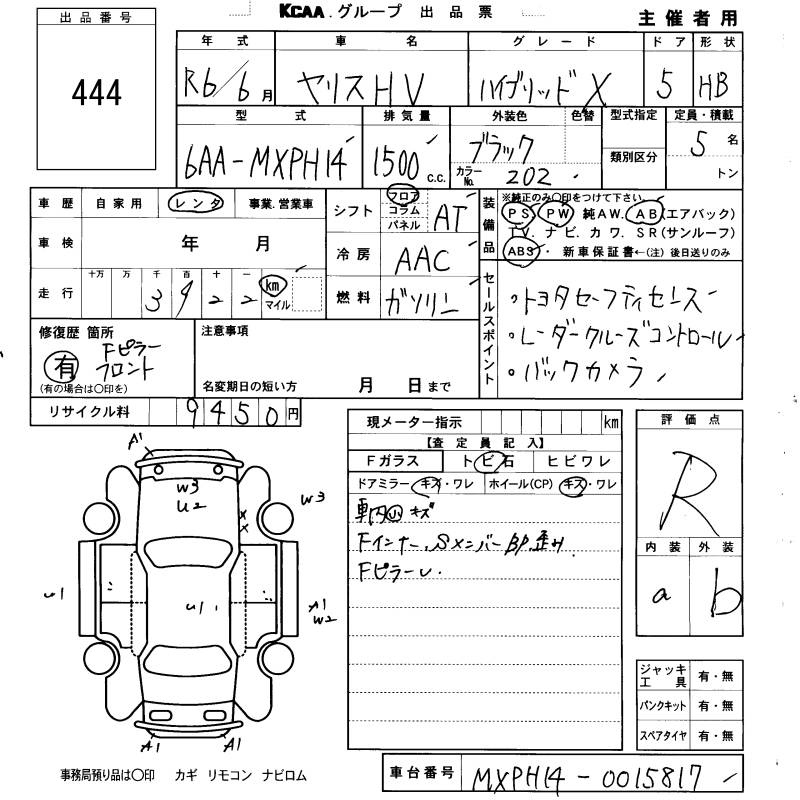 KCAA.グループ 出品票
主催者用
出品番号
444
年式 車名 グレード ドア 形状
R6/6月 ヤリスHV ハイブリッドX 5 HB
型式 排気量 外装色 色替 型式指定 定員・積載
6AA-MXPH14 1500c.c. ブラック 5名
カラーNo. 202 類別区分 トン
車歴 自家用 レンタ 事業.営業車
シフト フロア コラム パネル AT
装備品 ※純正のみ○印をつけて下さい
PS. PW. 純AW. AB(エアバック)
TV. ナビ. カワ. SR(サンルーフ)
ABS. 新車保証書←(注) 後日送りのみ
車検 年 月
冷房 AAC
走行 十万 万 千 百 十 一
3922 km マイル
燃料 ガソリン
セールスポイント
・トヨタセーフティセンス
・レーダークルーズコントロール
・バックカメラ
修復歴 箇所
有 Fピラー
フロント
(有の場合は○印を)
注意事項
名変期日の短い方 月 日まで
リサイクル料 9450円
現メーター指示 km
【査定員記入】
Fガラス トビ石 ヒビワレ
ドアミラー キズ・ワレ ホイール(CP) キズ・ワレ
車内小キズ
Fインナー、Sメンバー BP 歪み.
Fピラーレ.
評価点
R
内装 外装
a b
A1
W3
U2
W3
U1
U1
A1
W2
A1
A1
ジャッキ工具 有・無
パンクキット 有・無
スペアタイヤ 有・無
事務局預り品は○印 カギ リモコン ナビロム
車台番号 MXPH14-0015817